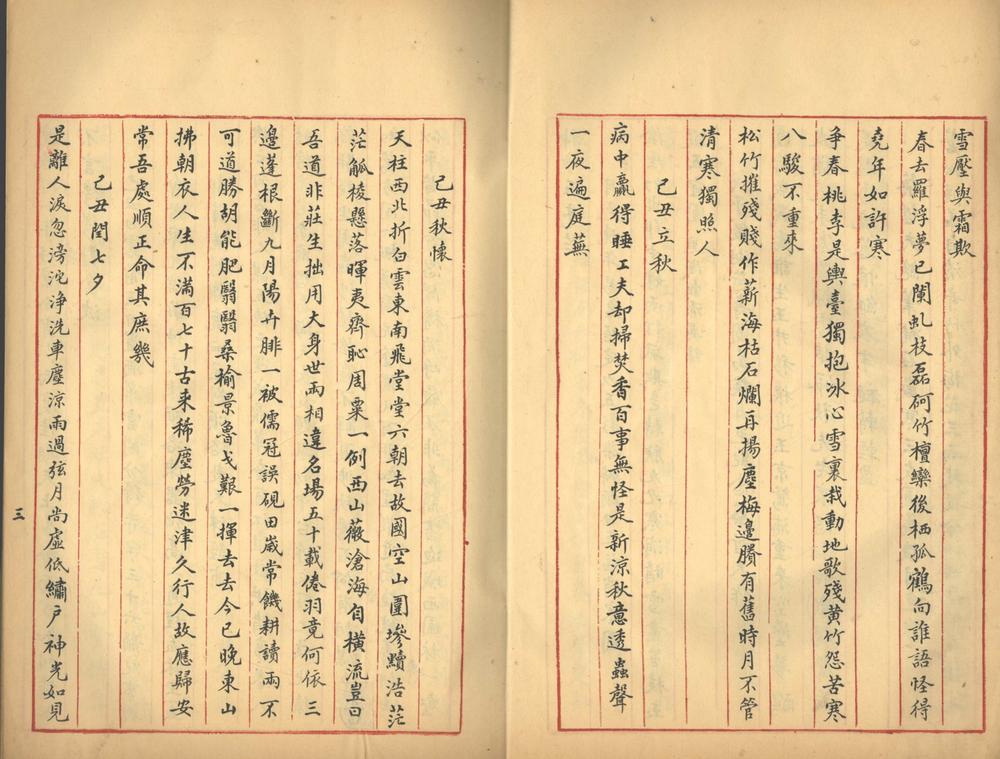 雪壓與霜欺
春去羅浮夢已闌虬枝磊砢竹檀欒後栖孤鶴向誰語怪得
堯年如許寒
爭春桃李是輿臺獨抱冰心雪裏栽動地歌殘黃竹怨苦寒
八駿不重來
松竹摧殘賤作薪海枯石爛再揚塵梅邊賸有舊時月不管
清寒獨照人
己丑立秋
病中贏得睡工夫却掃焚香百事無怪是新涼秋意透蟲聲
一夜遍庭蕪
己丑秋懷
天柱西北折白雲東南飛堂堂六朝去故國空山圍墋黷浩茫
茫觚棱懸落暉夷齊恥周粟一例西山薇滄海自橫流豈曰
吾道非莊生拙用大身世兩相違名場五十載倦羽竟何依三
邊蓬根斷九月陽卉腓一被儒冠誤硯田歲常饑耕讀兩不
可道勝胡能肥翳翳桑榆景魯戈艱一揮去去今已晚東山
拂朝衣人生不滿百七十古來稀塵勞迷津久行人故應歸安
常吾處順正命其庶幾
己丑閏七夕
是離人淚忽滂沱淨洗車塵涼雨過弦月尚虛低繡戶神光如見
三